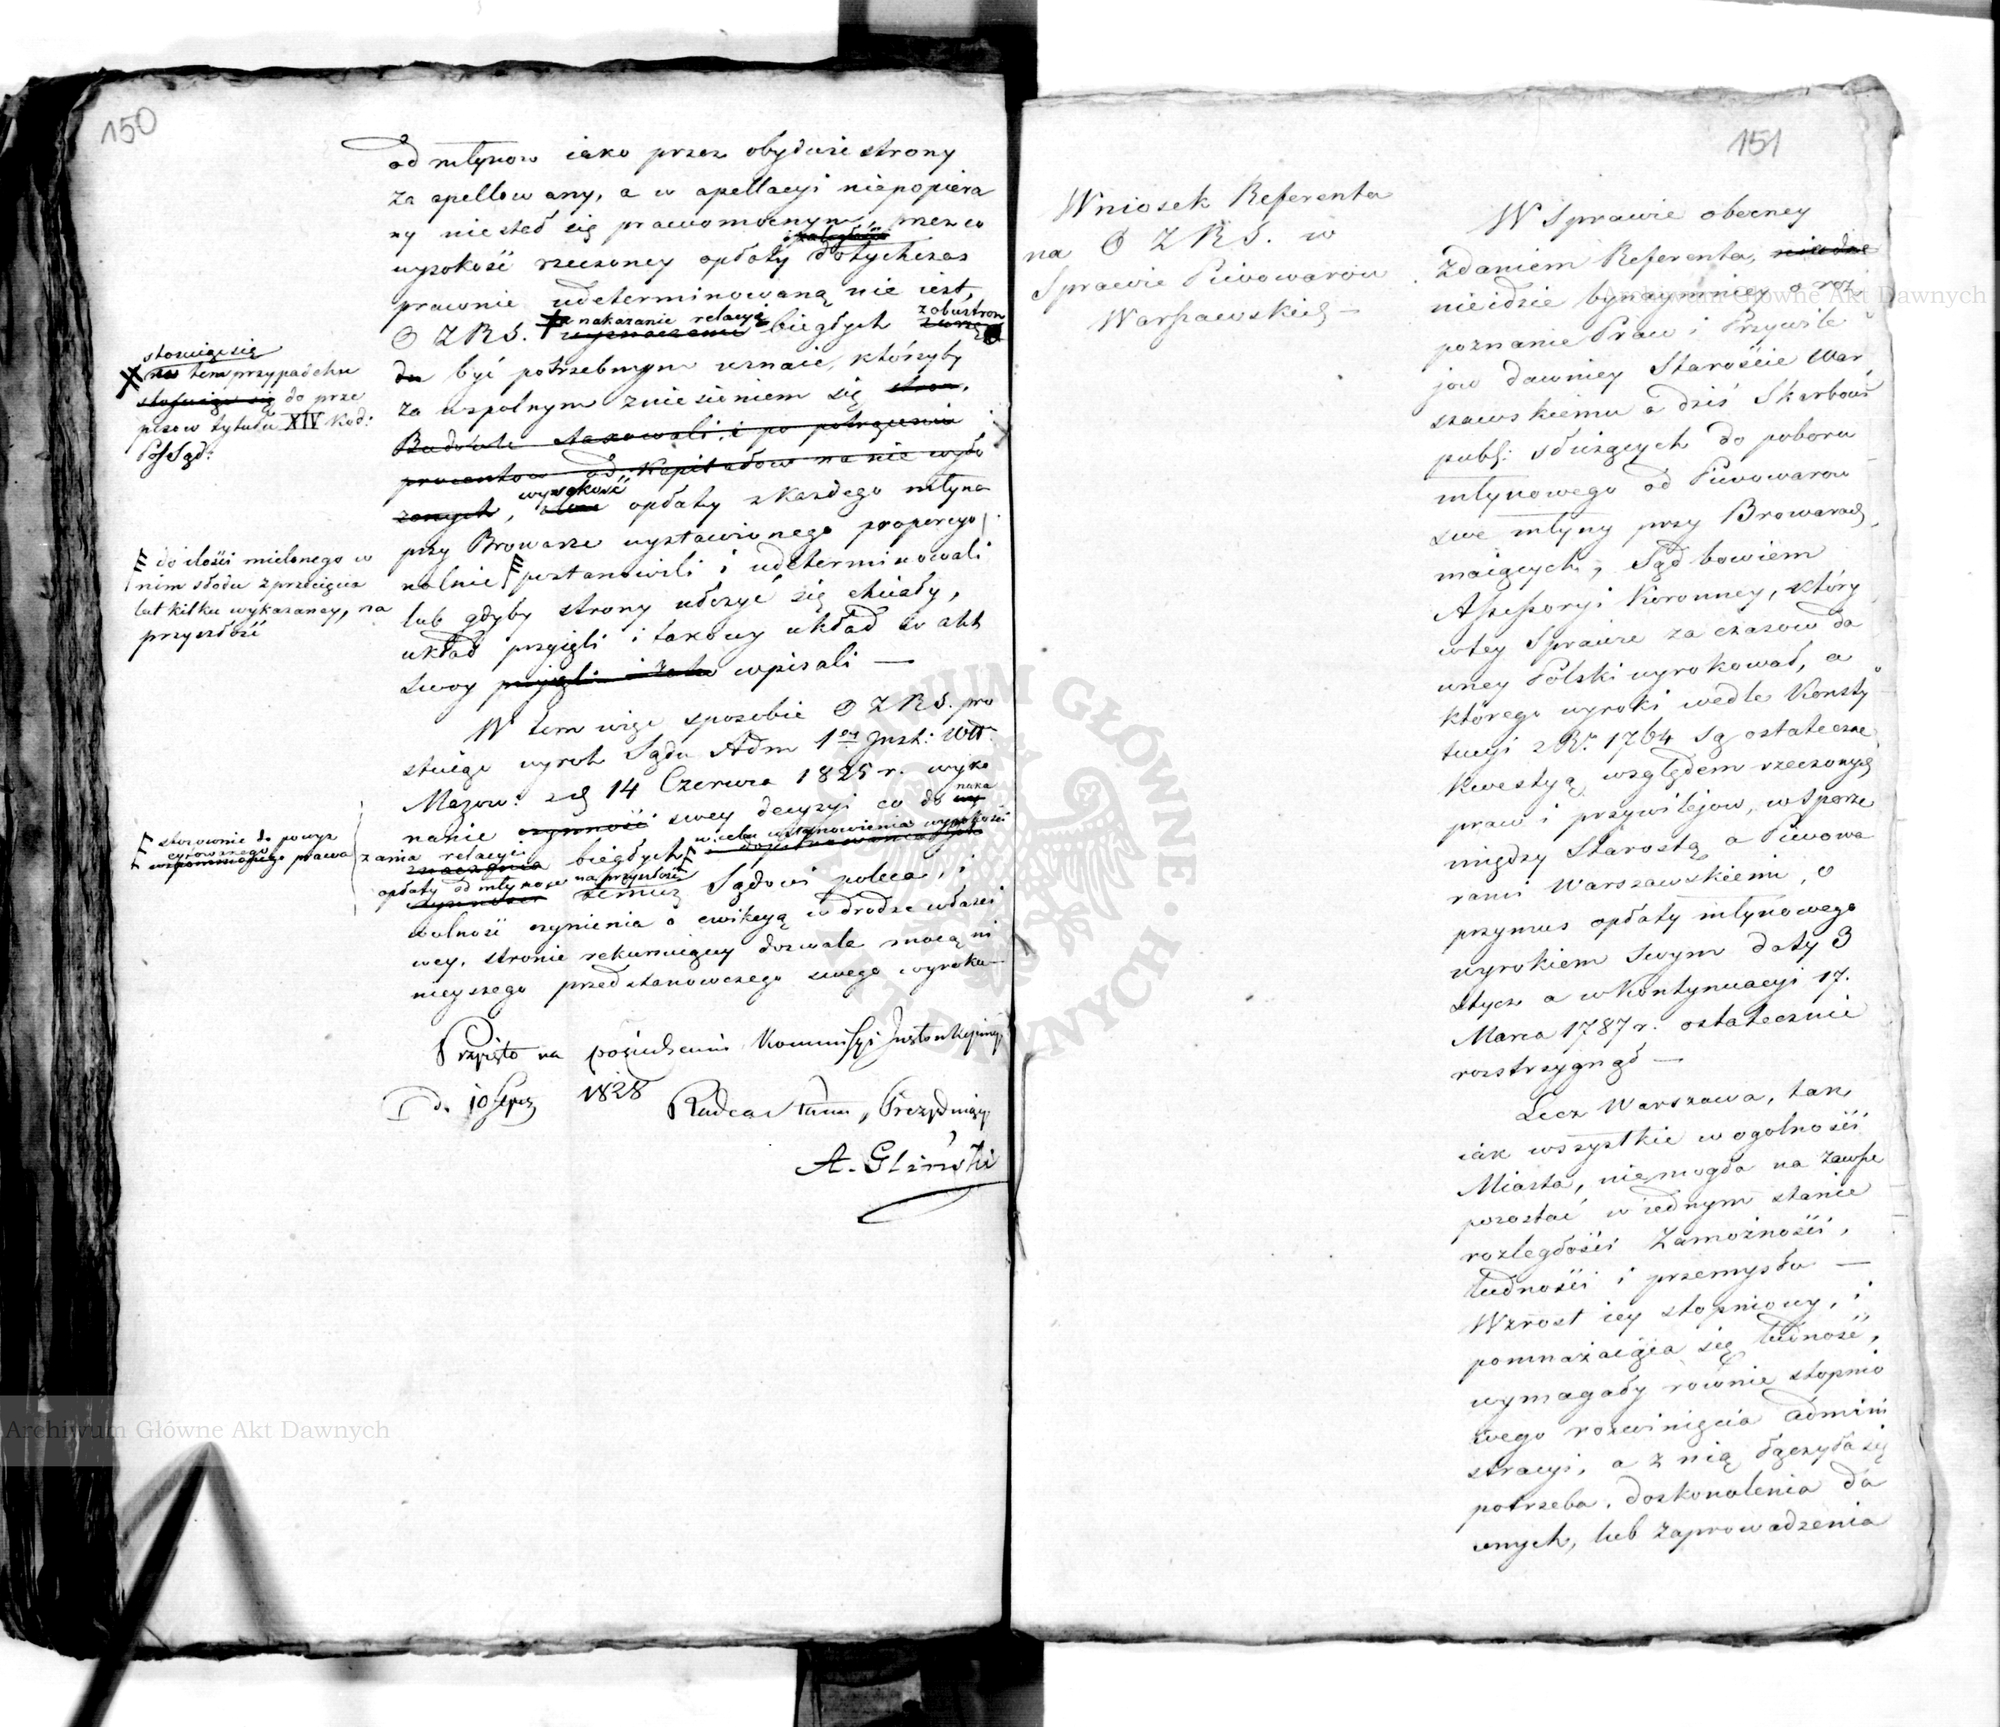 150
od młynow iako przez obydwie strony
za apellowany, a w apellacyi niepopiera
ny nie stał się prawomocnym, przez co
wysokość rzeczoney opłaty dotychczas
prawnie udeterminowaną nie iest,
O Z R S. nakazanie relacyi biegłych z obustron
być potrzebnym uznaie, którzyby
za wspolnym zniesieniem się stron,
Budowle taxowali, i po potrąceniu
procentow od Kapitałow na nie wyło
zonych, wysokość opłaty z Każdego młyna
przy Browarze wystawionego proporcyo
nalnie postanowili i udeterminowali
lub gdyby strony ułożyć się chciały,
układ przyięli i takowy układ w akt
swoy przyięli i wpisali —
stosuiąc się
w tem przypadku
stosuiąc się do prze
pisow tytułu XIV Kod:
Po Sąd:
do ilości mielonego w
nim słodu z przecięcia
lat kilku wykazaney, na
przyszłość
W tem więc sposobie O Z R S. pro
stuiąc wyrok Sądu Adm 1ey Inst: Wdt.
Mazow: z d 14 Czerwca 1825 r. wyko
nanie czynności swey decyzyi co do naka
zania relacyi biegłych w celu ustanowienia wysokości
opłaty od młynow na przyszłość temuż Sądowi poleca, i
wolność czynienia o ewikcyą w drodze właści
wey, stronie rekuruiącey dozwala mocą ni
nieyszego przedstanowczego swego wyroku —
stosownie do powyz
prawa
Przyięto na posiedzeniu Kommissyi Instrukcyiney
D. d. 10 1828
Radca Stanu, Prezyduiący
A. Gliński
151
Wniosek Referenta
na O Z R S. w
Sprawie Piwowarow
Warszawskich —
W Sprawie obecney
zdaniem Referenta,
nieidzie bynaymniey o roz
poznanie Praw i Przywile
jow dawniey Staroście War
szawskiemu a dziś Skarbowi
publ: służących do poboru
młynowego od Piwowarow
swe młyny przy Browarach
maiących; Sąd bowiem
Assessoryi Koronney, który
w tey Sprawie za czasow da
wney Polski wyrokował, a
którego wyroki wedle Konsty
tucyi z R. 1764 są ostateczne
kwestyą względem rzeczonych
praw i przywilejow, w Sporze
między Starostą a Piwowa
rami Warszawskiemi, o
przymus opłaty młynowego
wyrokiem swym daty 3
Stycz a w Kontynuacyi 17.
Marca 1787 r. ostatecznie
rozstrzygnął —
Lecz Warszawa, tak
iak wszystkie w ogolności
Miasta, niemogła na zawsze
pozostać w iednym stanie
rozległości zamożności,
ludności i przemysłu —
Wzrost iey stopniowy, i
pomnażaiąca się ludność,
wymagały rownie stopnio
wego rozwinięcia admini
stracyi, a z nią łączyła się
potrzeba, doskonalenia da
wnych, lub zaprowadzenia
Archiwum Główne Akt Dawnych
Archiwum Główne Akt Dawnych
ARCHIWUM GŁÓWNE AKT DAWNYCH